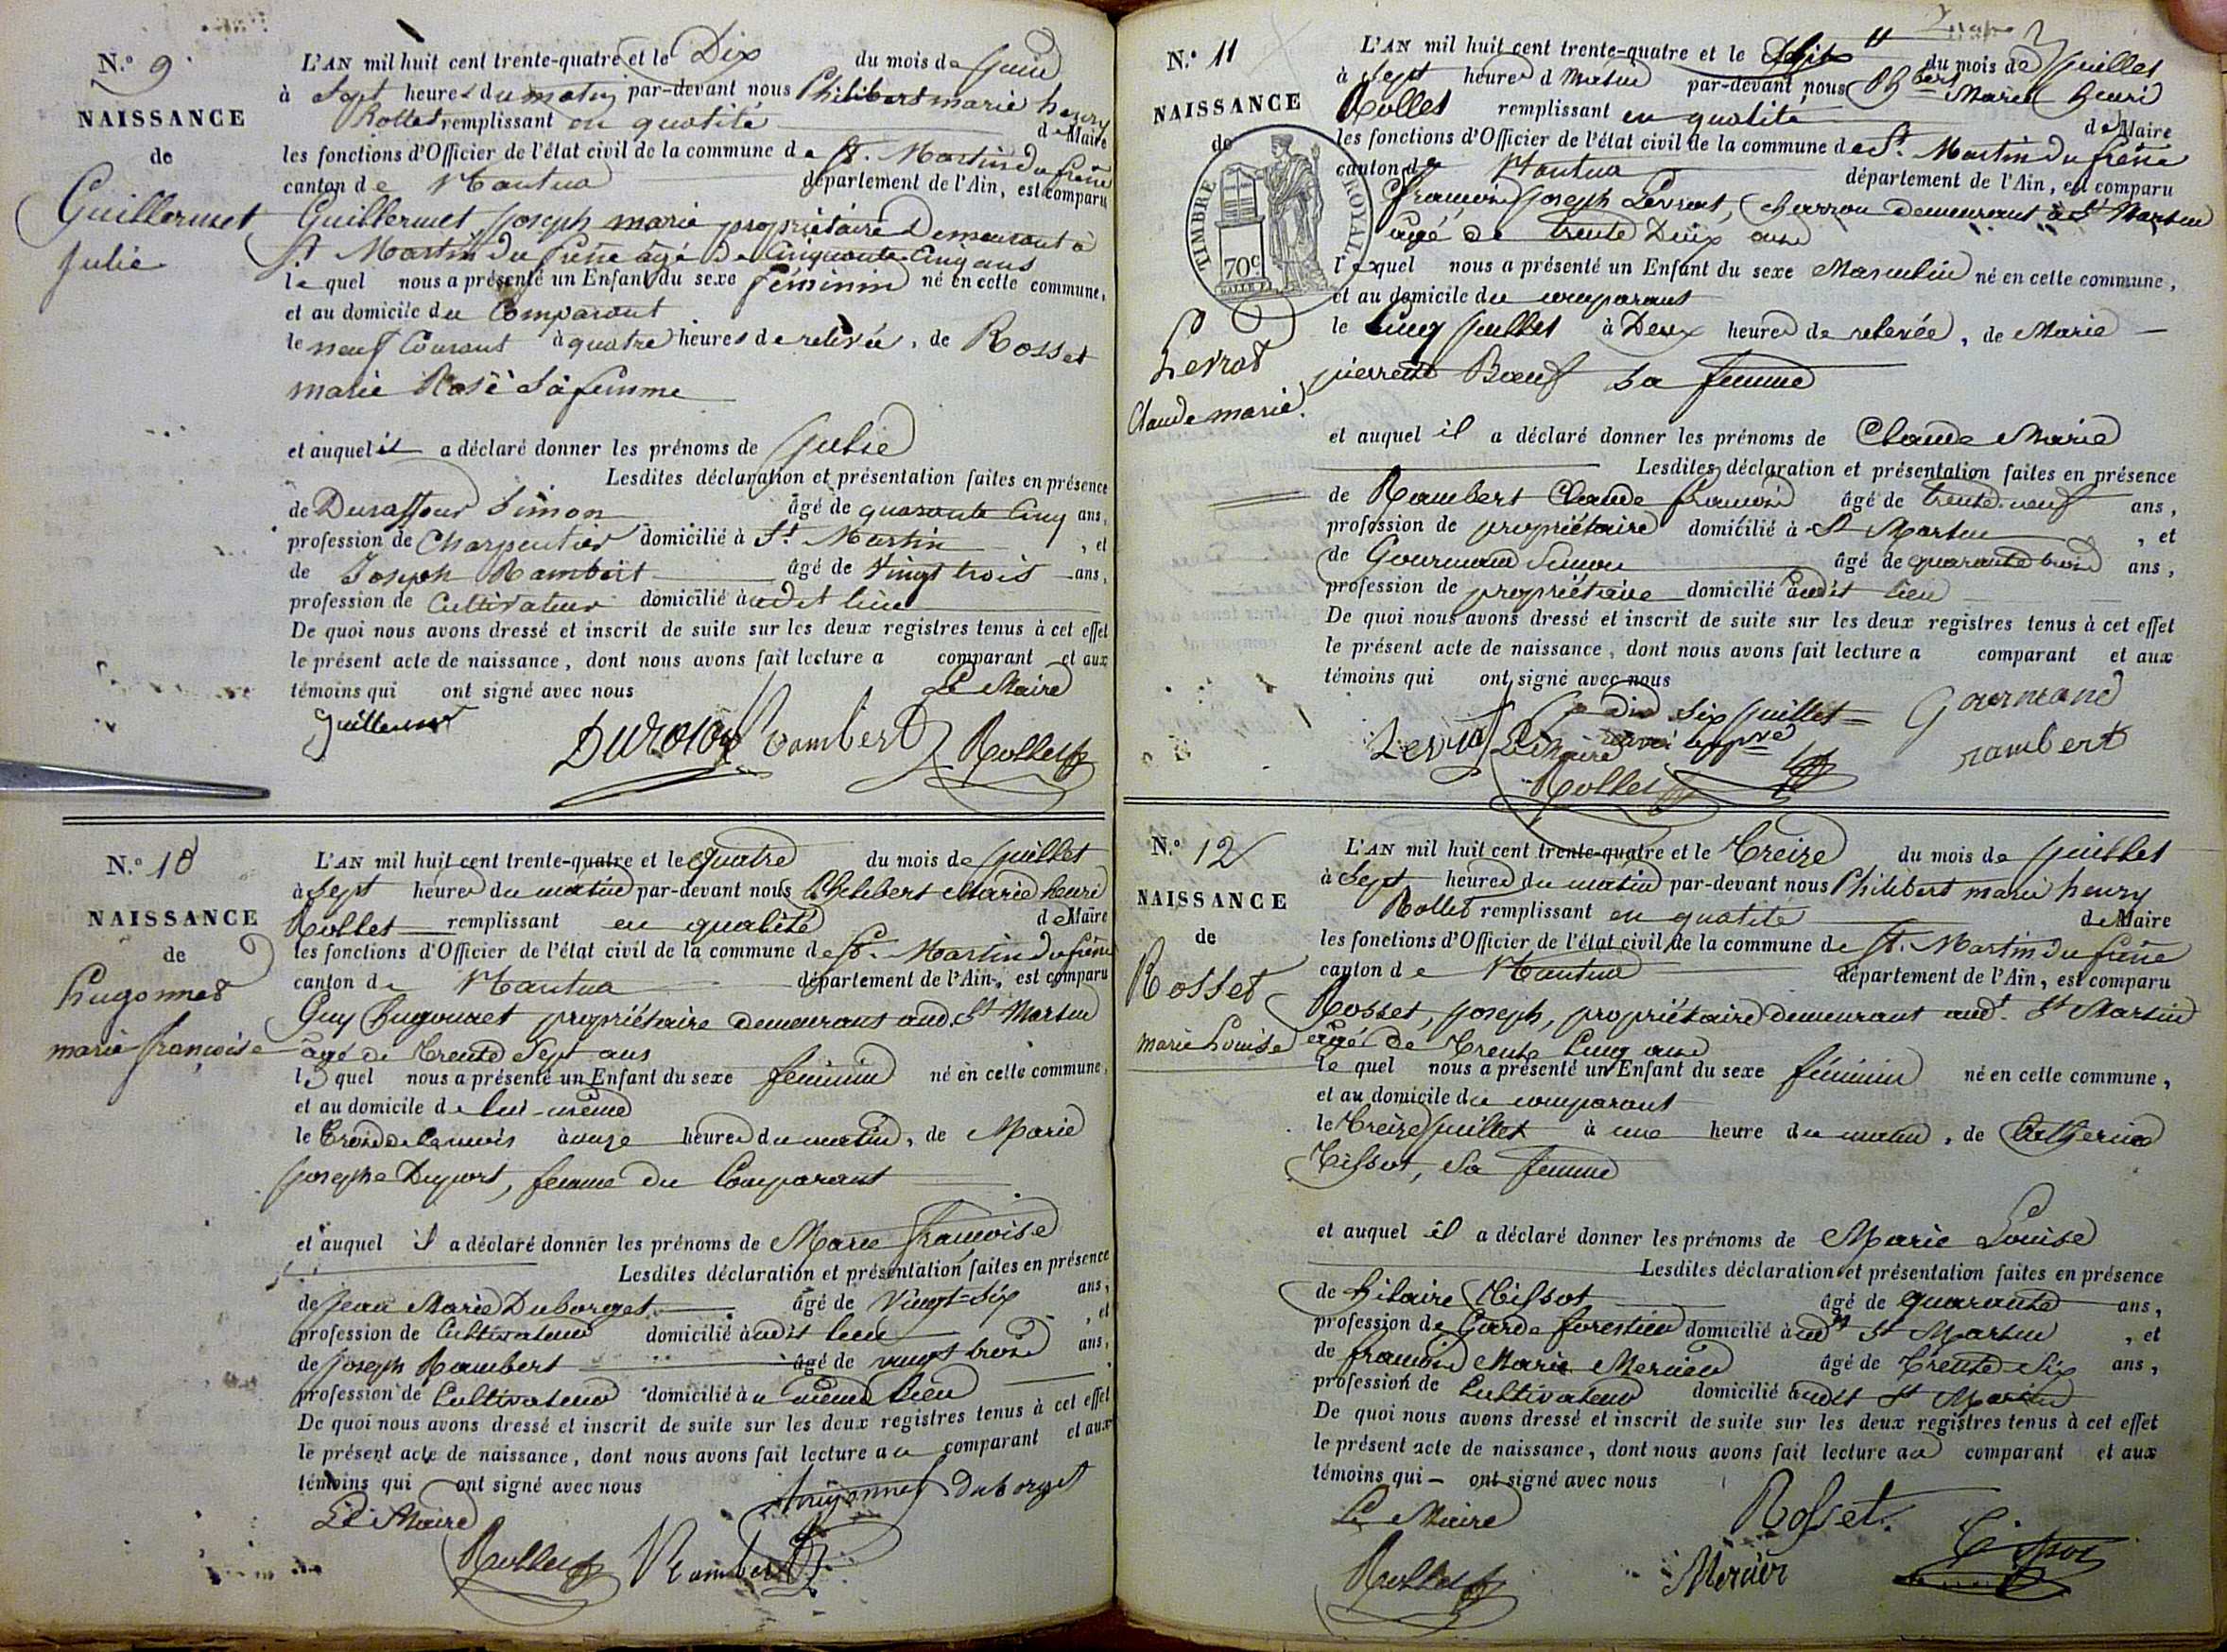 N.° 9
NAISSANCE
de
Guillermet
Julie
L'AN mil huit cent trente-quatre et le Dix du mois de Juin
à Sept heures du matin par-devant nous Philibert marie henry
Rollet remplissant en qualité de Maire
les fonctions d'Officier de l'état civil de la commune de St. Martin du frêne
canton de Nantua département de l'Ain, est comparu
Guillermet, joseph marie propriétaire Demeurant à
St Martin du frêne âgé De Cinquante Cinq ans
le quel nous a présenté un Enfant du sexe féminin né en cette commune,
et au domicile du Comparant
le neuf Courant à quatre heures de relevée, de Rosset
marie Rose Sa femme
et auquel il a déclaré donner les prénoms de Julie
Lesdites déclaration et présentation faites en présence
de Duraffour Simon âgé de quarante Cinq ans,
profession de Charpentier domicilié à St Martin, et
de Joseph Rambert âgé de Vingt trois ans,
profession de Cultivateur domicilié audit lieu
De quoi nous avons dressé et inscrit de suite sur les deux registres tenus à cet effet
le présent acte de naissance, dont nous avons fait lecture a comparant et aux
témoins qui ont signé avec nous Le Maire
Guillermet rambert Rollet
N.° 10
NAISSANCE
de
hugonnet
marie françoise
L'AN mil huit cent trente-quatre et le quatre du mois de juillet
à Sept heures du matin par-devant nous Philibert Marie henri
Rollet remplissant en qualité de Maire
les fonctions d'Officier de l'état civil de la commune de St. Martin du frêne
canton de Nantua département de l'Ain, est comparu
Guy hugonnet propriétaire demeurant aud. St Martin
âgé de trente Sept ans
le quel nous a présenté un Enfant du sexe féminin né en cette commune,
et au domicile de lui-même
le trois de ce mois à onze heures du matin, de Marie
Josephe Duport, femme du Comparant
et auquel il a déclaré donner les prénoms de Marie françoise
Lesdites déclaration et présentation faites en présence
de Jean Marie Duborget âgé de Vingt-Six ans,
profession de Cultivateur domicilié audit lieu, et
de joseph Rambert âgé de vingt trois ans,
profession de Cultivateur domicilié au même lieu
De quoi nous avons dressé et inscrit de suite sur les deux registres tenus à cet effet
le présent acte de naissance, dont nous avons fait lecture au comparant et aux
témoins qui ont signé avec nous
hugonnet Duborget
Le Maire
Rollet Rambert
N.° 11
NAISSANCE
de
TIMBRE ROYAL
70c
Levrat
Claude marie.
L'AN mil huit cent trente-quatre et le du mois de Juillet
à Sept heures d Matin par-devant nous Phbert Marie henri
Rollet remplissant en qualité de Maire
les fonctions d'Officier de l'état civil de la commune de St. Martin du frêne
canton de Nantua département de l'Ain, est comparu
françois joseph Levrat, Charron demeurant à St Martin
âgé de trente Deux ans
lequel nous a présenté un Enfant du sexe Masculin né en cette commune,
et au domicile du comparant
le Cinq Juillet à Deux heures de relevée, de Marie
pierrette Bœuf sa femme
et auquel il a déclaré donner les prénoms de Claude Marie
Lesdites déclaration et présentation faites en présence
de Rambert Claude françois âgé de trente-neuf ans,
profession de propriétaire domicilié à St Martin, et
de Gourmand Simon âgé de quarante trois ans,
profession de propriétaire domicilié audit lieu
De quoi nous avons dressé et inscrit de suite sur les deux registres tenus à cet effet
le présent acte de naissance, dont nous avons fait lecture a comparant et aux
témoins qui ont signé avec nous
dix six Juillet Gourmand
Levrat Le Maire rambert
Rollet
N.° 12
NAISSANCE
de
Rosset
marie Louise
L'AN mil huit cent trente-quatre et le Treize du mois de juillet
à Sept heures du matin par-devant nous Philibert marie henry
Rollet remplissant en qualité de Maire
les fonctions d'Officier de l'état civil de la commune de St. Martin du frêne
canton de Nantua département de l'Ain, est comparu
Rosset, joseph, propriétaire demeurant aud. St Martin
âgé de Trente Cinq ans
le quel nous a présenté un Enfant du sexe féminin né en cette commune,
et au domicile du comparant
le Treize Juillet à une heure du matin, de Catherine
Tissot, Sa femme
et auquel il a déclaré donner les prénoms de Marie Louise
Lesdites déclaration et présentation faites en présence
de hilaire Tissot âgé de quarante ans,
profession de Garde forestier domicilié aud St Martin, et
de françois Marie Mercier âgé de Trente Six ans,
profession de Cultivateur domicilié audit St Martin
De quoi nous avons dressé et inscrit de suite sur les deux registres tenus à cet effet
le présent acte de naissance, dont nous avons fait lecture au comparant et aux
témoins qui ont signé avec nous
Le Maire Rosset.
Rollet Mercier Tissot